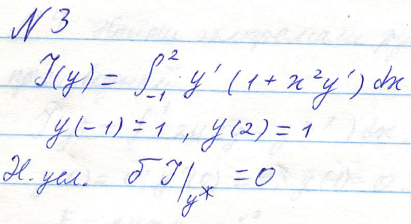 N 3
J(y) = ∫₋₁² y' (1 + x² y') dx
y(-1) = 1 , y(2) = 1
Н. усл. δJ|y* = 0